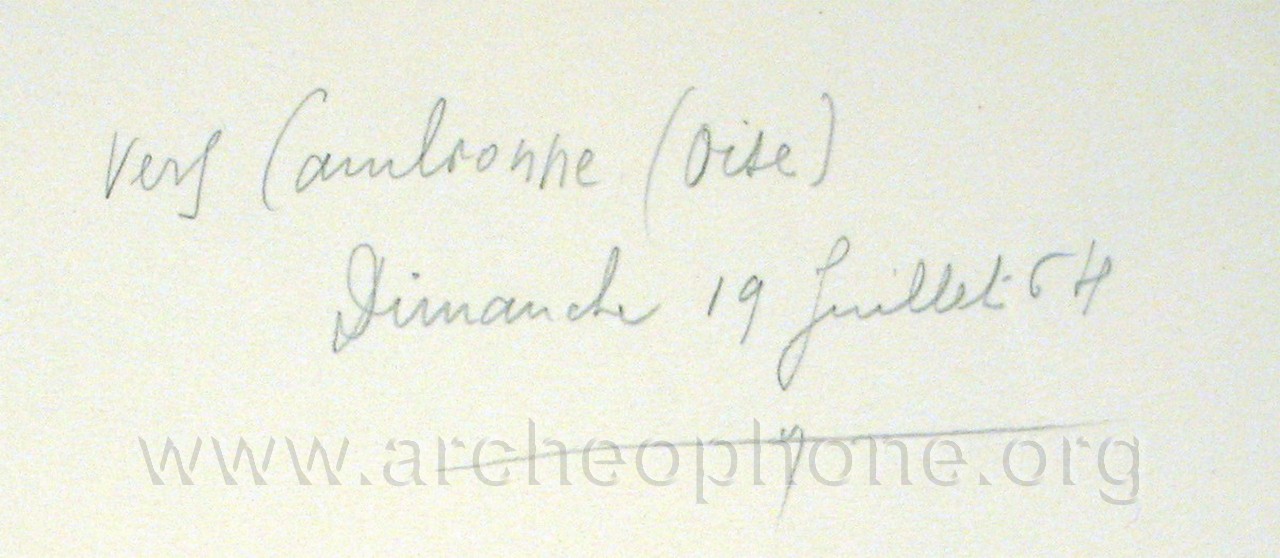 Vers Cambronne (Oise)
Dimanche 19 Juillet 64
www.archeophone.org